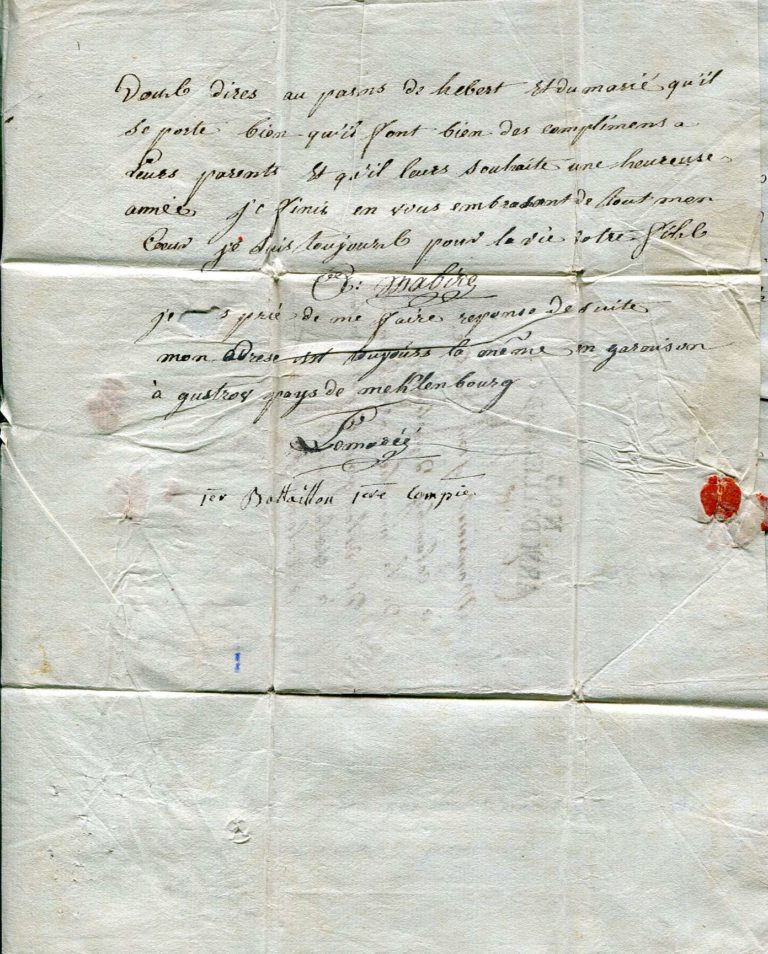 Vous dires au parins de hebert et dumarié qu'il
se porte bien qu'il font bien des complimens a
Leurs parents et qu'il leurs souhaite une heureuse
année je finis en vous embrasent de tout mon
Cœur je suis toujours pour la vie votre fils
Mabire
je s prié de me faire reponse de suite
mon adrese est toujours la même en garnison
à gustrow pays de meklenbourg
Lemarié
1er Battaillon 1ere Compie